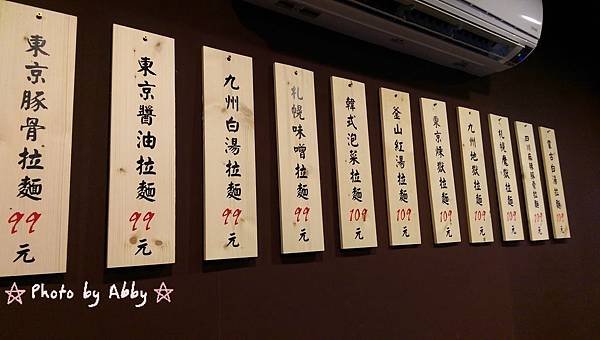 東京豚骨拉麵99元
東京醬油拉麵99元
九州白湯拉麵99元
札幌味噌拉麵99元
韓式泡菜拉麵109元
釜山紅湯拉麵109元
東京煉獄拉麵109元
九州地獄拉麵109元
札幌魔獄拉麵109元
四川麻辣豚骨拉麵109元
蒙古白湯拉麵109元
Photo by Abby